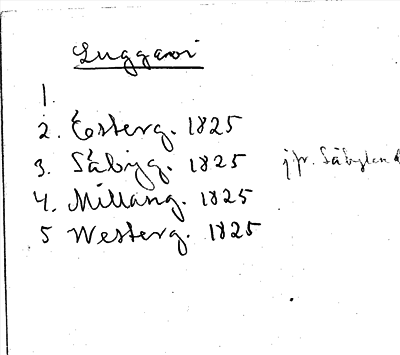 Luggavi
1.
2. Österg. 1825
3. Säbyg. 1825 jfr. Säbylund
4. Mellang. 1825
5 Westerg. 1825